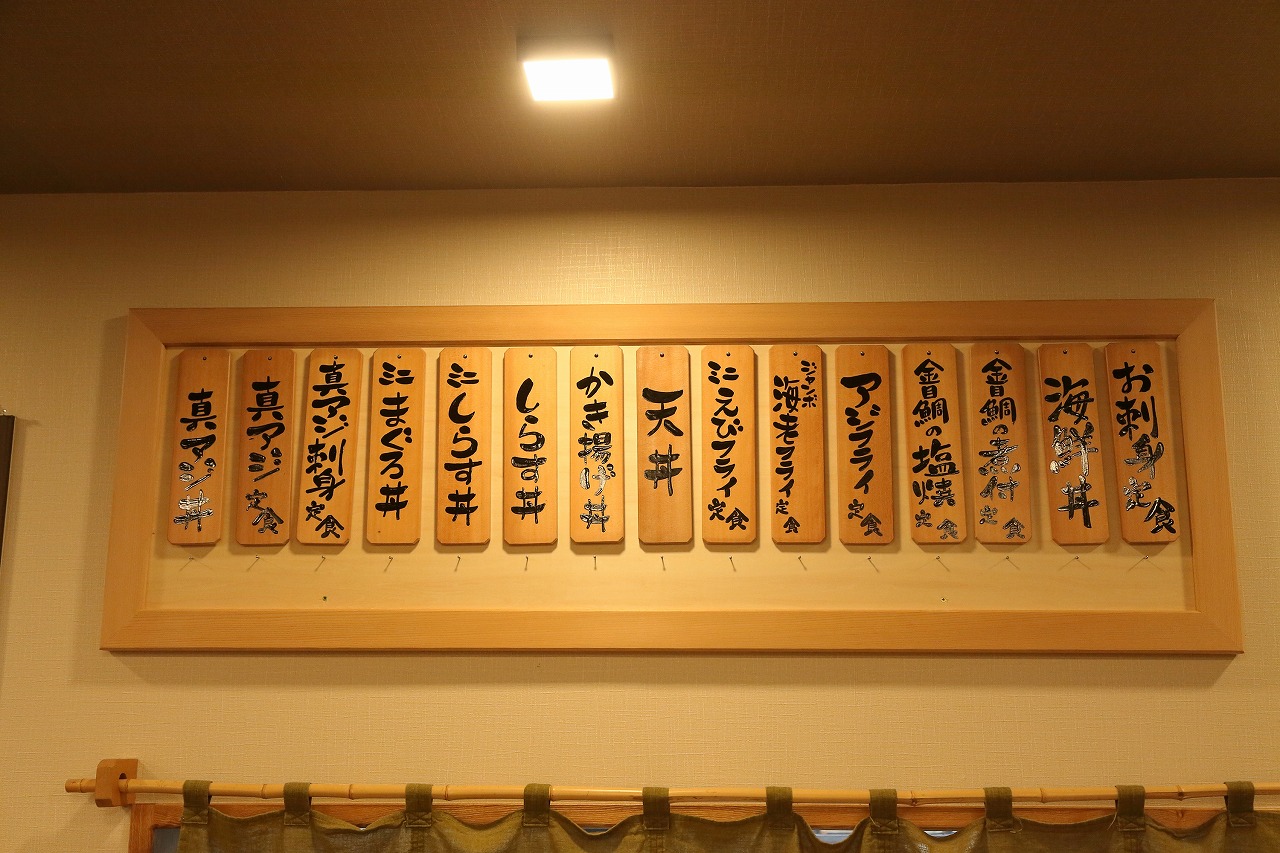 お刺身定食
海鮮丼
金目鯛の煮付定食
金目鯛の塩焼定食
アジフライ定食
ジャンボ海老フライ定食
ミニえびフライ定食
天丼
かき揚げ丼
しらす丼
ミニしらす丼
ミニまぐろ丼
真アジ刺身定食
真アジ定食
真アジ丼